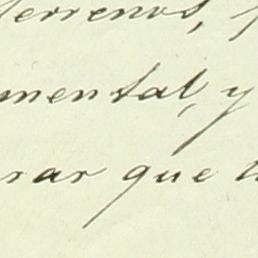 terrenos,
mental, y
rar que